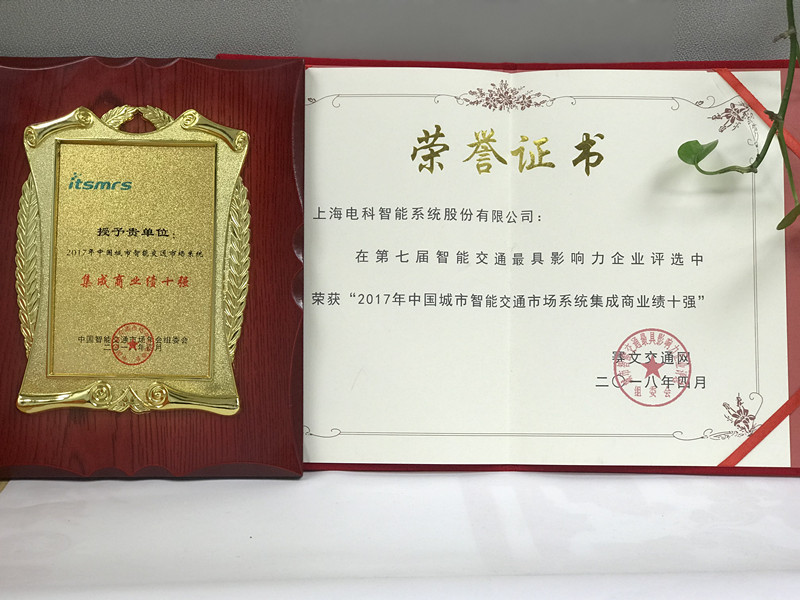 itsmrs
授予贵单位：
2017年中国城市智能交通市场系统
集成商业绩十强
中国智能交通市场年会组委会
二〇一八年四月
荣誉证书
上海电科智能系统股份有限公司：
在第七届智能交通最具影响力企业评选中
荣获“2017年中国城市智能交通市场系统集成商业绩十强”
赛文交通网
二〇一八年四月
组委会